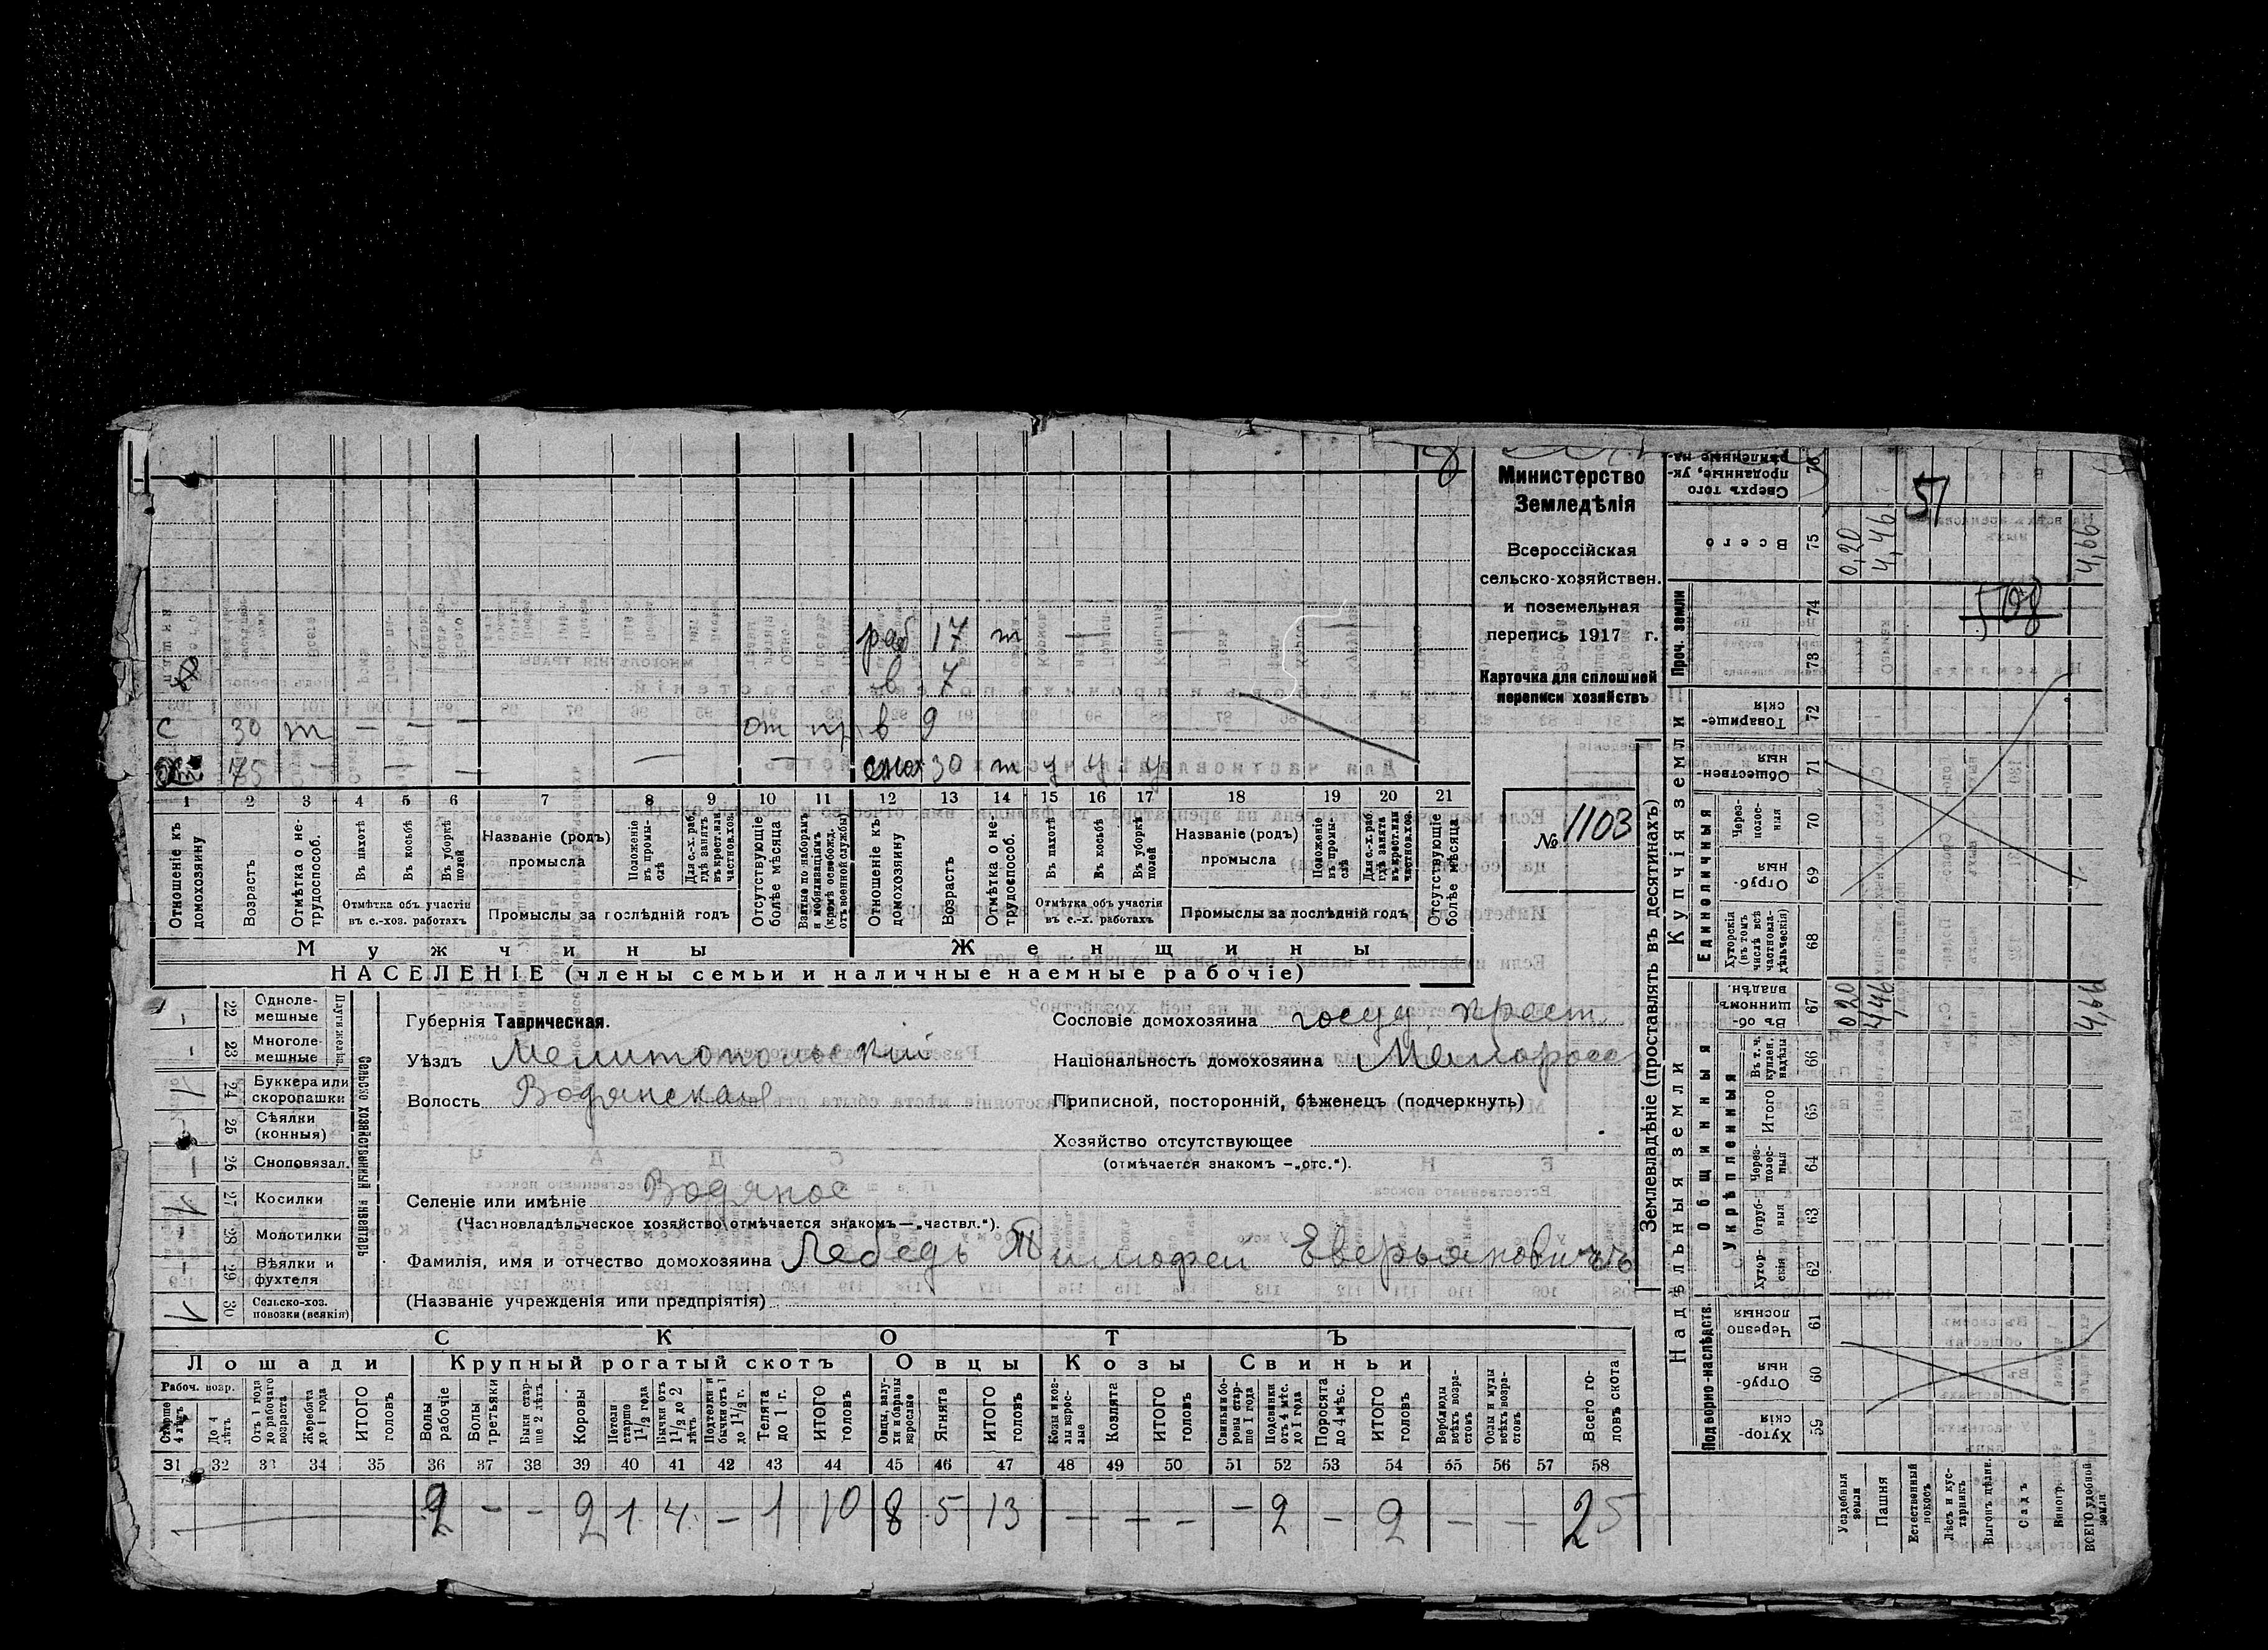 8
раб 17 т — — —
в 7
с 30 т — — — от пр в 9
75 — — — — — снох 30 т у у у
1 2 3 4 5 6 7 8 9 10 11 12 13 14 15 16 17 18 19 20 21
Отношеніе къ домохозяину
Возрастъ
Отмѣтка о не-трудоспособ.
Въ пахотѣ
Въ косьбѣ
Въ уборкѣ полей
Отмѣтка объ участіи въ с.-хоз. работахъ
Названіе (родъ) промысла
Положеніе въ промы-слѣ
Для с.-х. раб. гдѣ занятъ въ крест. или частновл. хоз.
Промыслы за послѣдній годъ
Отсутствующіе болѣе мѣсяца
Взятые по наборамъ и мобилизаціямъ (кромѣ освобожд. отъ военной службы)
Отношеніе къ домохозяину
Возрастъ
Отмѣтка о не-трудоспособ.
Въ пахотѣ
Въ косьбѣ
Въ уборкѣ полей
Отмѣтка объ участіи въ с.-х. работахъ
Названіе (родъ) промысла
Положеніе въ промы-слѣ
Для с.-х. раб. гдѣ занята въ крест. или частновл. хоз.
Промыслы за послѣдній годъ
Отсутствующіе болѣе мѣсяца
Мужчины Женщины
НАСЕЛЕНІЕ (члены семьи и наличные наемные рабочіе)
Министерство
Земледѣлія
Всероссійская
сельско-хозяйствен.
и поземельная
перепись 1917 г.
Карточка для сплошной
переписи хозяйствъ
№ 1103
22 Однолемешные —
23 Многолемешные —
24 Буккера или скоропашки 1
25 Сѣялки (конныя)
26 Сноповязал. —
27 Косилки 1
28 Молотилки —
29 Вѣялки и фухтеля —
30 Сельско-хоз. повозки (всякія) 1
Сельско хозяйственный инвентарь
Губернія Таврическая.
Уѣздъ Мелитопольскій
Волость Водянская
Селеніе или имѣніе Водяное
(Частновладѣльческое хозяйство отмѣчается знакомъ—„частвл.“).
Фамилія, имя и отчество домохозяина Лебедь Тимофей Еверьяновичъ
(Названіе учрежденія или предпріятія)
Сословіе домохозяина госуд. крест.
Національность домохозяина Малоросс
Приписной, посторонній, бѣженецъ (подчеркнуть)
Хозяйство отсутствующее
(отмѣчается знакомъ —„отс.“).
СКОТЪ
Лошади Крупный рогатый скотъ Овцы Козы Свиньи
Рабоч. возр.
Старше 4 лѣтъ
До 4 лѣтъ
Отъ 1 года до рабочаго возраста
Жеребята до 1 года
ИТОГО головъ
Волы рабочіе
Волы третьяки
Быки стар-ше 2 лѣтъ
Коровы
Нетели старше 1 1/2 года
Бычки отъ 1 1/2 до 2 лѣтъ
Подтелки и бычки отъ 1 до 1 1/2 г.
Телята до 1 г.
ИТОГО головъ
Овцы, валу-хи и бараны взрослые
Ягнята
ИТОГО головъ
Козы и коз-лы взрос-лые
Козлята
ИТОГО головъ
Свиньи и бо-ровы стар-ше 1 года
Подсвинки отъ 4 мѣс. до 1 года
Поросята до 4 мѣс.
ИТОГО головъ
Верблюды всѣхъ возра-стовъ
Ослы и мулы всѣхъ возра-стовъ
Всего го-ловъ скота
31 32 33 34 35 36 37 38 39 40 41 42 43 44 45 46 47 48 49 50 51 52 53 54 55 56 57 58
2 — — 2 1 4 — 1 10 8 5 13 — — — — 2 — 2 — — 25
Землевладѣніе (проставлять въ десятинахъ)
Надѣльныя земли
Купчія земли
Проч. земли
Подворно-наслѣдств.
Общинныя
Укрѣпленныя
Единоличныя
59 Хутор-скія
60 Отруб-ныя
61 Черезпо-лосныя
62 Хутор-скія
63 Отруб-ныя
64 Через-полос-ныя
65 Итого
66 Въ т. ч. куплен. надѣлы
67 Въ об-щинномъ владѣн.
68 Хуторскія (въ томъ числѣ всѣ частновла-дѣльческія)
69 Отруб-ныя
70 Через-полос-ныя
71 Обществен-ныя
72 Товарище-скія
73
74
75 Всего
76 Сверхъ того проданные, ук-рѣпленные на-
Усадебныя земли
Пашня
Естественный покосъ
Лѣсъ и кус-тарникъ
Выгонъ цѣлин.
Садъ
Виногр.
ВСЕГО удобной земли
0,20 4,46 4,66
0,20 4,46 4,66
51
508